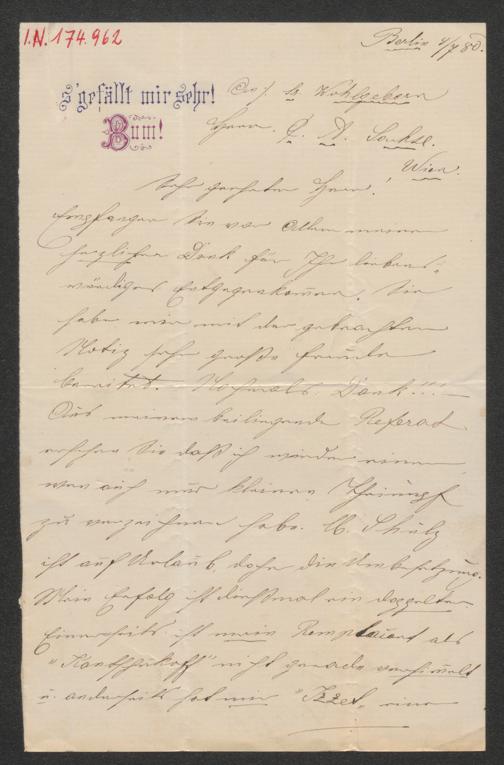 I.N. 174.962
Berlin 4/7 80.
s'gefällt mir sehr!
Bum!
Wohlgeborn
Herrn C. A. Sachse.
Wien.
Sehr geehrter Herr!
Empfangen Sie vor Allem meinen
herzlichen Dank für Ihr liebens-
würdiges Entgegenkommen. Sie
haben mir mit der gebrachten
Notiz sehr große Freude
bereitet. Nochmals Dank!!! —
Aus meinem beiliegenden Referat
ersehen Sie daß ich wieder einen
wenn auch nur kleinen Triumpf
zu verzeichnen habe. Schulz
ist auf Urlaub, daher die Umbesetzung.
Mein Erfolg ist diesmal ein doppelter
Einerseits ist mein Remplaçant als
"Kantschukoff" nicht gerade verhimmelt
u. anderseits hat mir "Izzet" eine